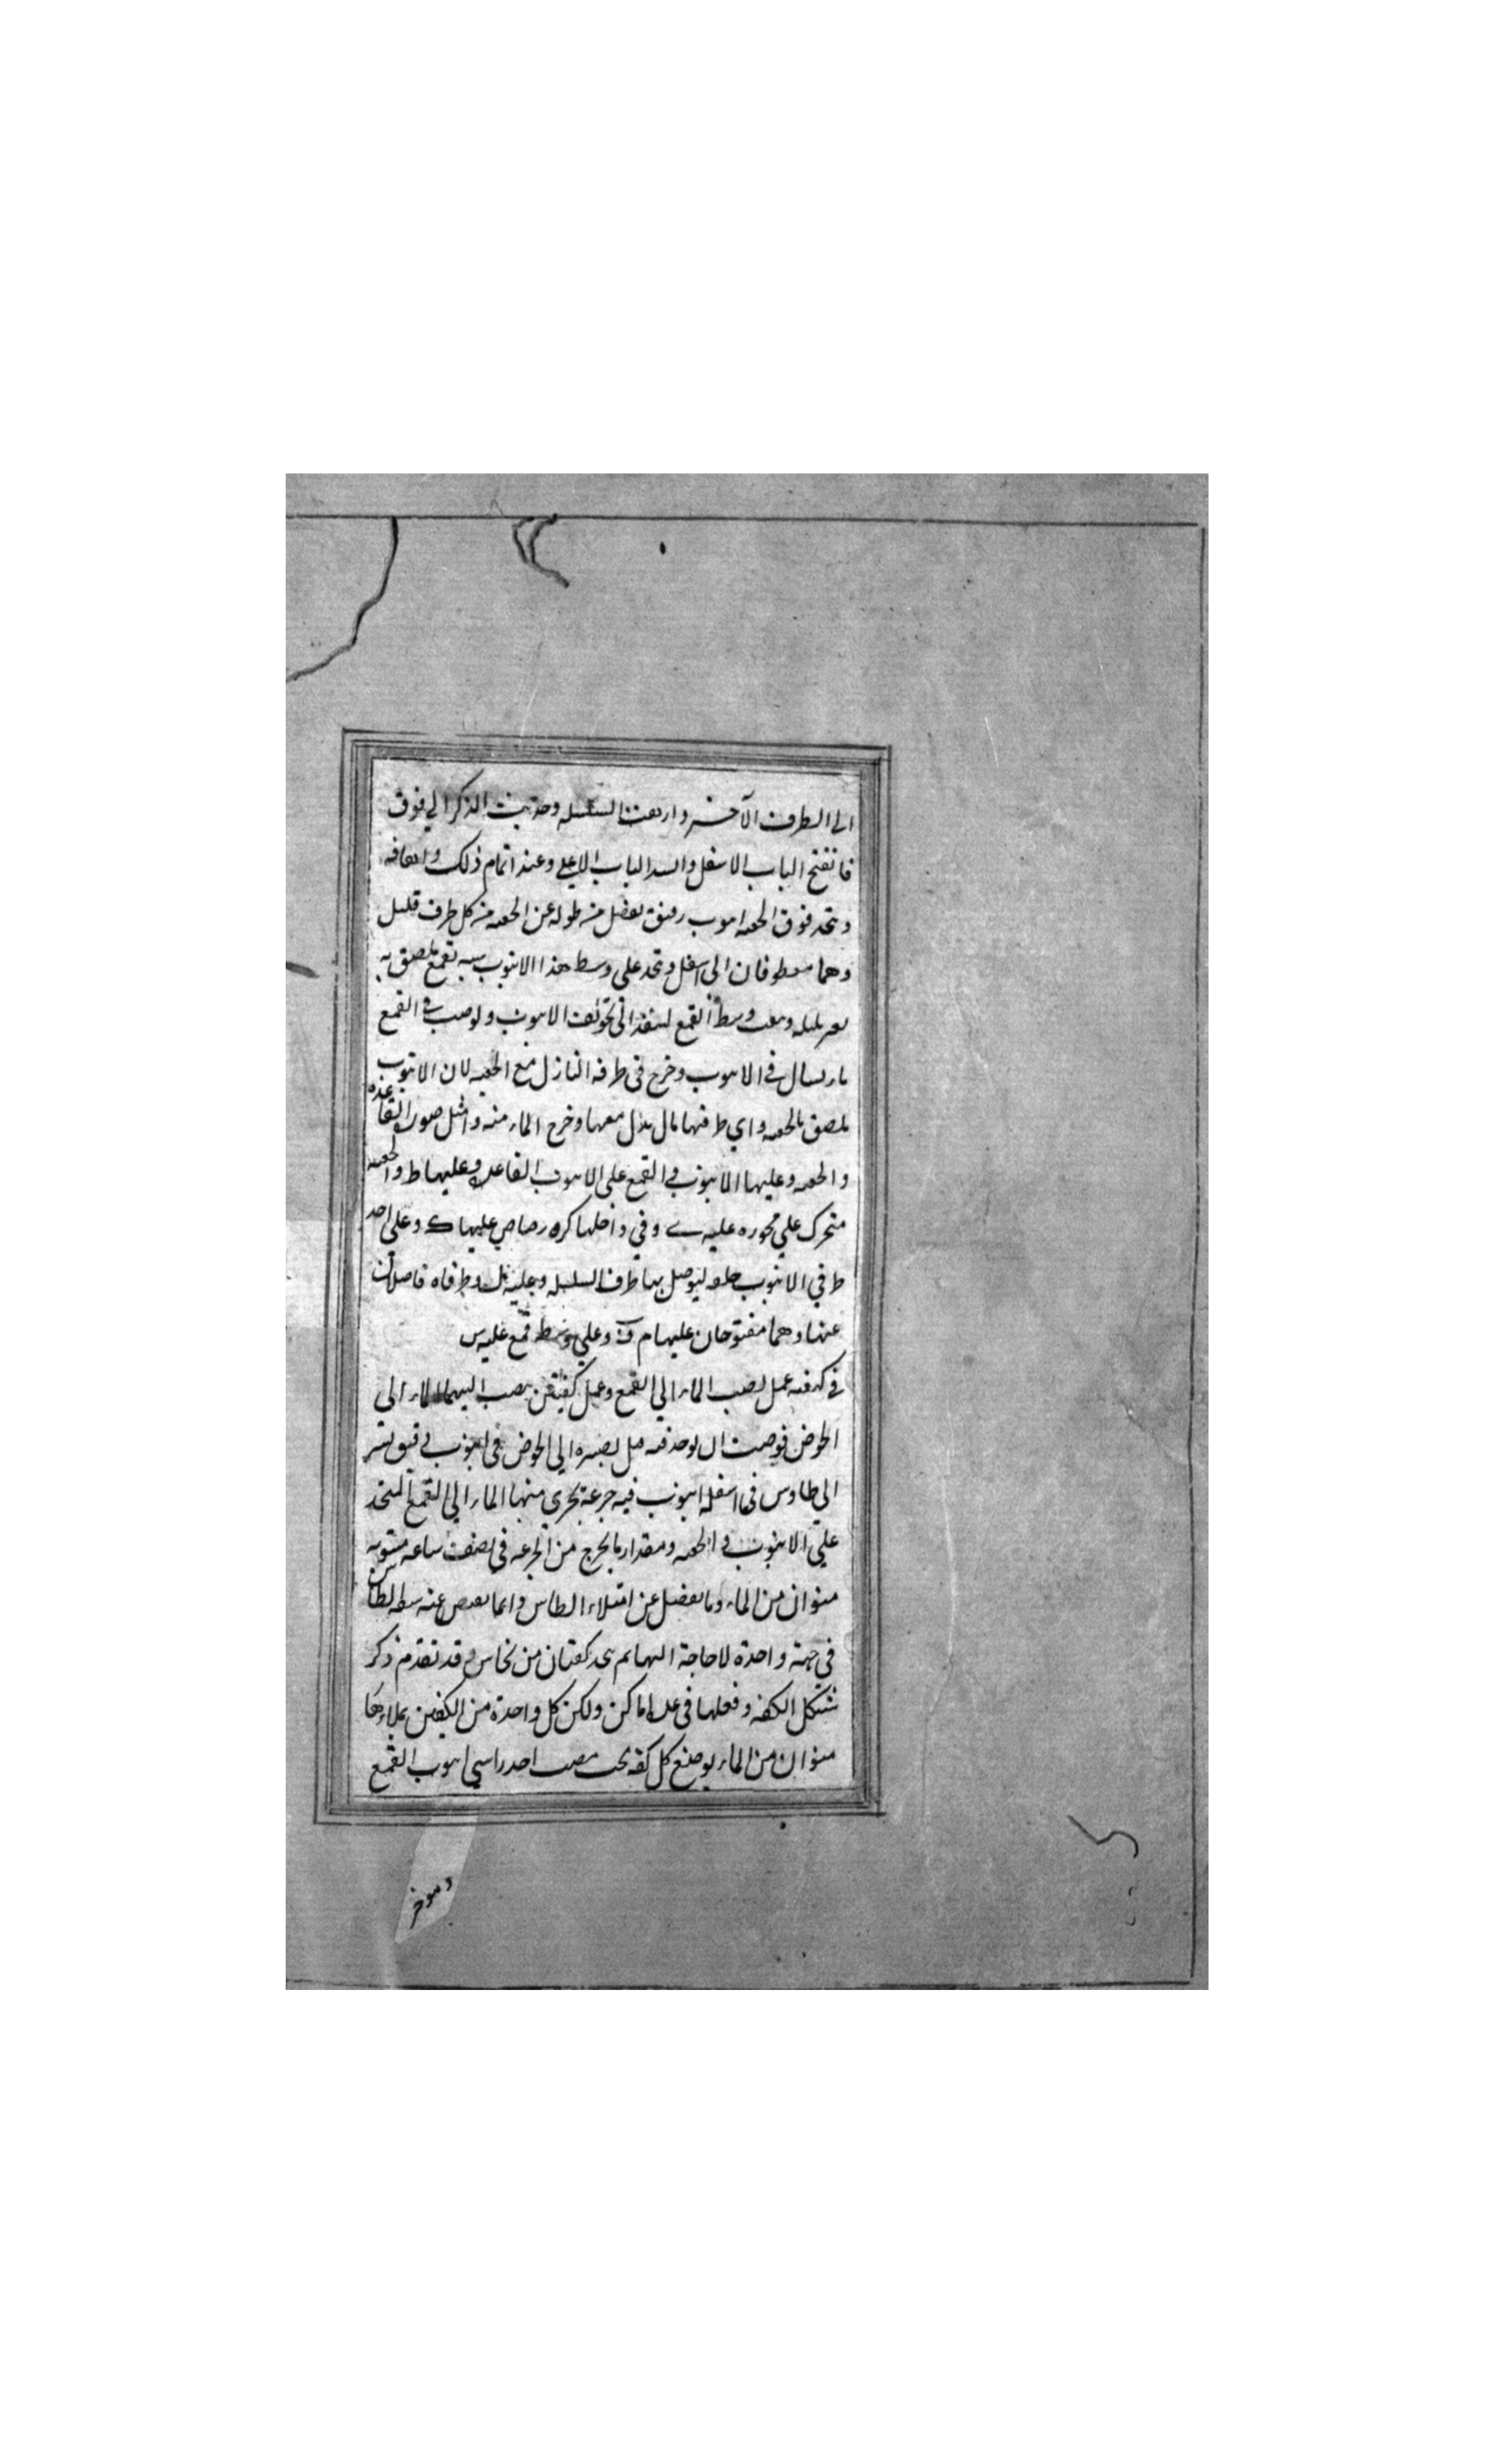 الى الطرف الآخر وارتفعت السلسله وجذبت الذكر الي فوق
فانفتح الباب الاسفل وانسد الباب الاعلي وعند اتمام ذلك
ويتخذ فوق الجعبه انبوب رقيق يفضل من طوله عن الجعبه من كل طرف قليل
وهما معطوفان الى اسفل ويتخذ على وسط هذا الانبوب قمع ملصق به
وسط القمع لينفذ الى تجويف الانبوب ولو صب في القمع
ماء لسال في الانبوب وخرج في طرفه النازل مع الجعبه لان الانبوب
ملصق بالجعبه واي طرفيها مال نزل معها وخرج الماء منه وامثل صورة القاعده
والجعبه وعليها الانبوب والقمع على الانبوب القاعده وعليها ط والجعبه
متحرك علي محوره عليه ي وفي داخلها كره رصاص عليها ك وعلى احد
طرفي الانبوب حلقه ليوصل بها طرف السلسله وعليه ل وطرفاه فاضلان
عنها وهما مفتوحان عليهما م ن وعلي وسط قمع عليه س
في كيفيه عمل لصب الماء الي القمع وعمل كفتين يصب اليهما الماء الى
الحوض الى الحوض في انبوب دقيق
الي طاوس في اسفله انبوب فيه جزعة يجري منها الماء الي القمع المتخذ
علي الانبوب والجعبه ومقدار ما يخرج من الجزعه في نصف ساعه مستويه
منوان من الماء وما يفضل عن امتلاء الطاس وانما
في جهة واحدة لا حاجة اليها ثم يتخذ كفتان من نحاس وقد تقدم ذكر
شكل الكفه وفعلها في عدة اماكن ولكن كل واحدة من الكفتين يملاءها
منوان من الماء يوضع كل كفه تحت مصب احد راسي انبوب القمع